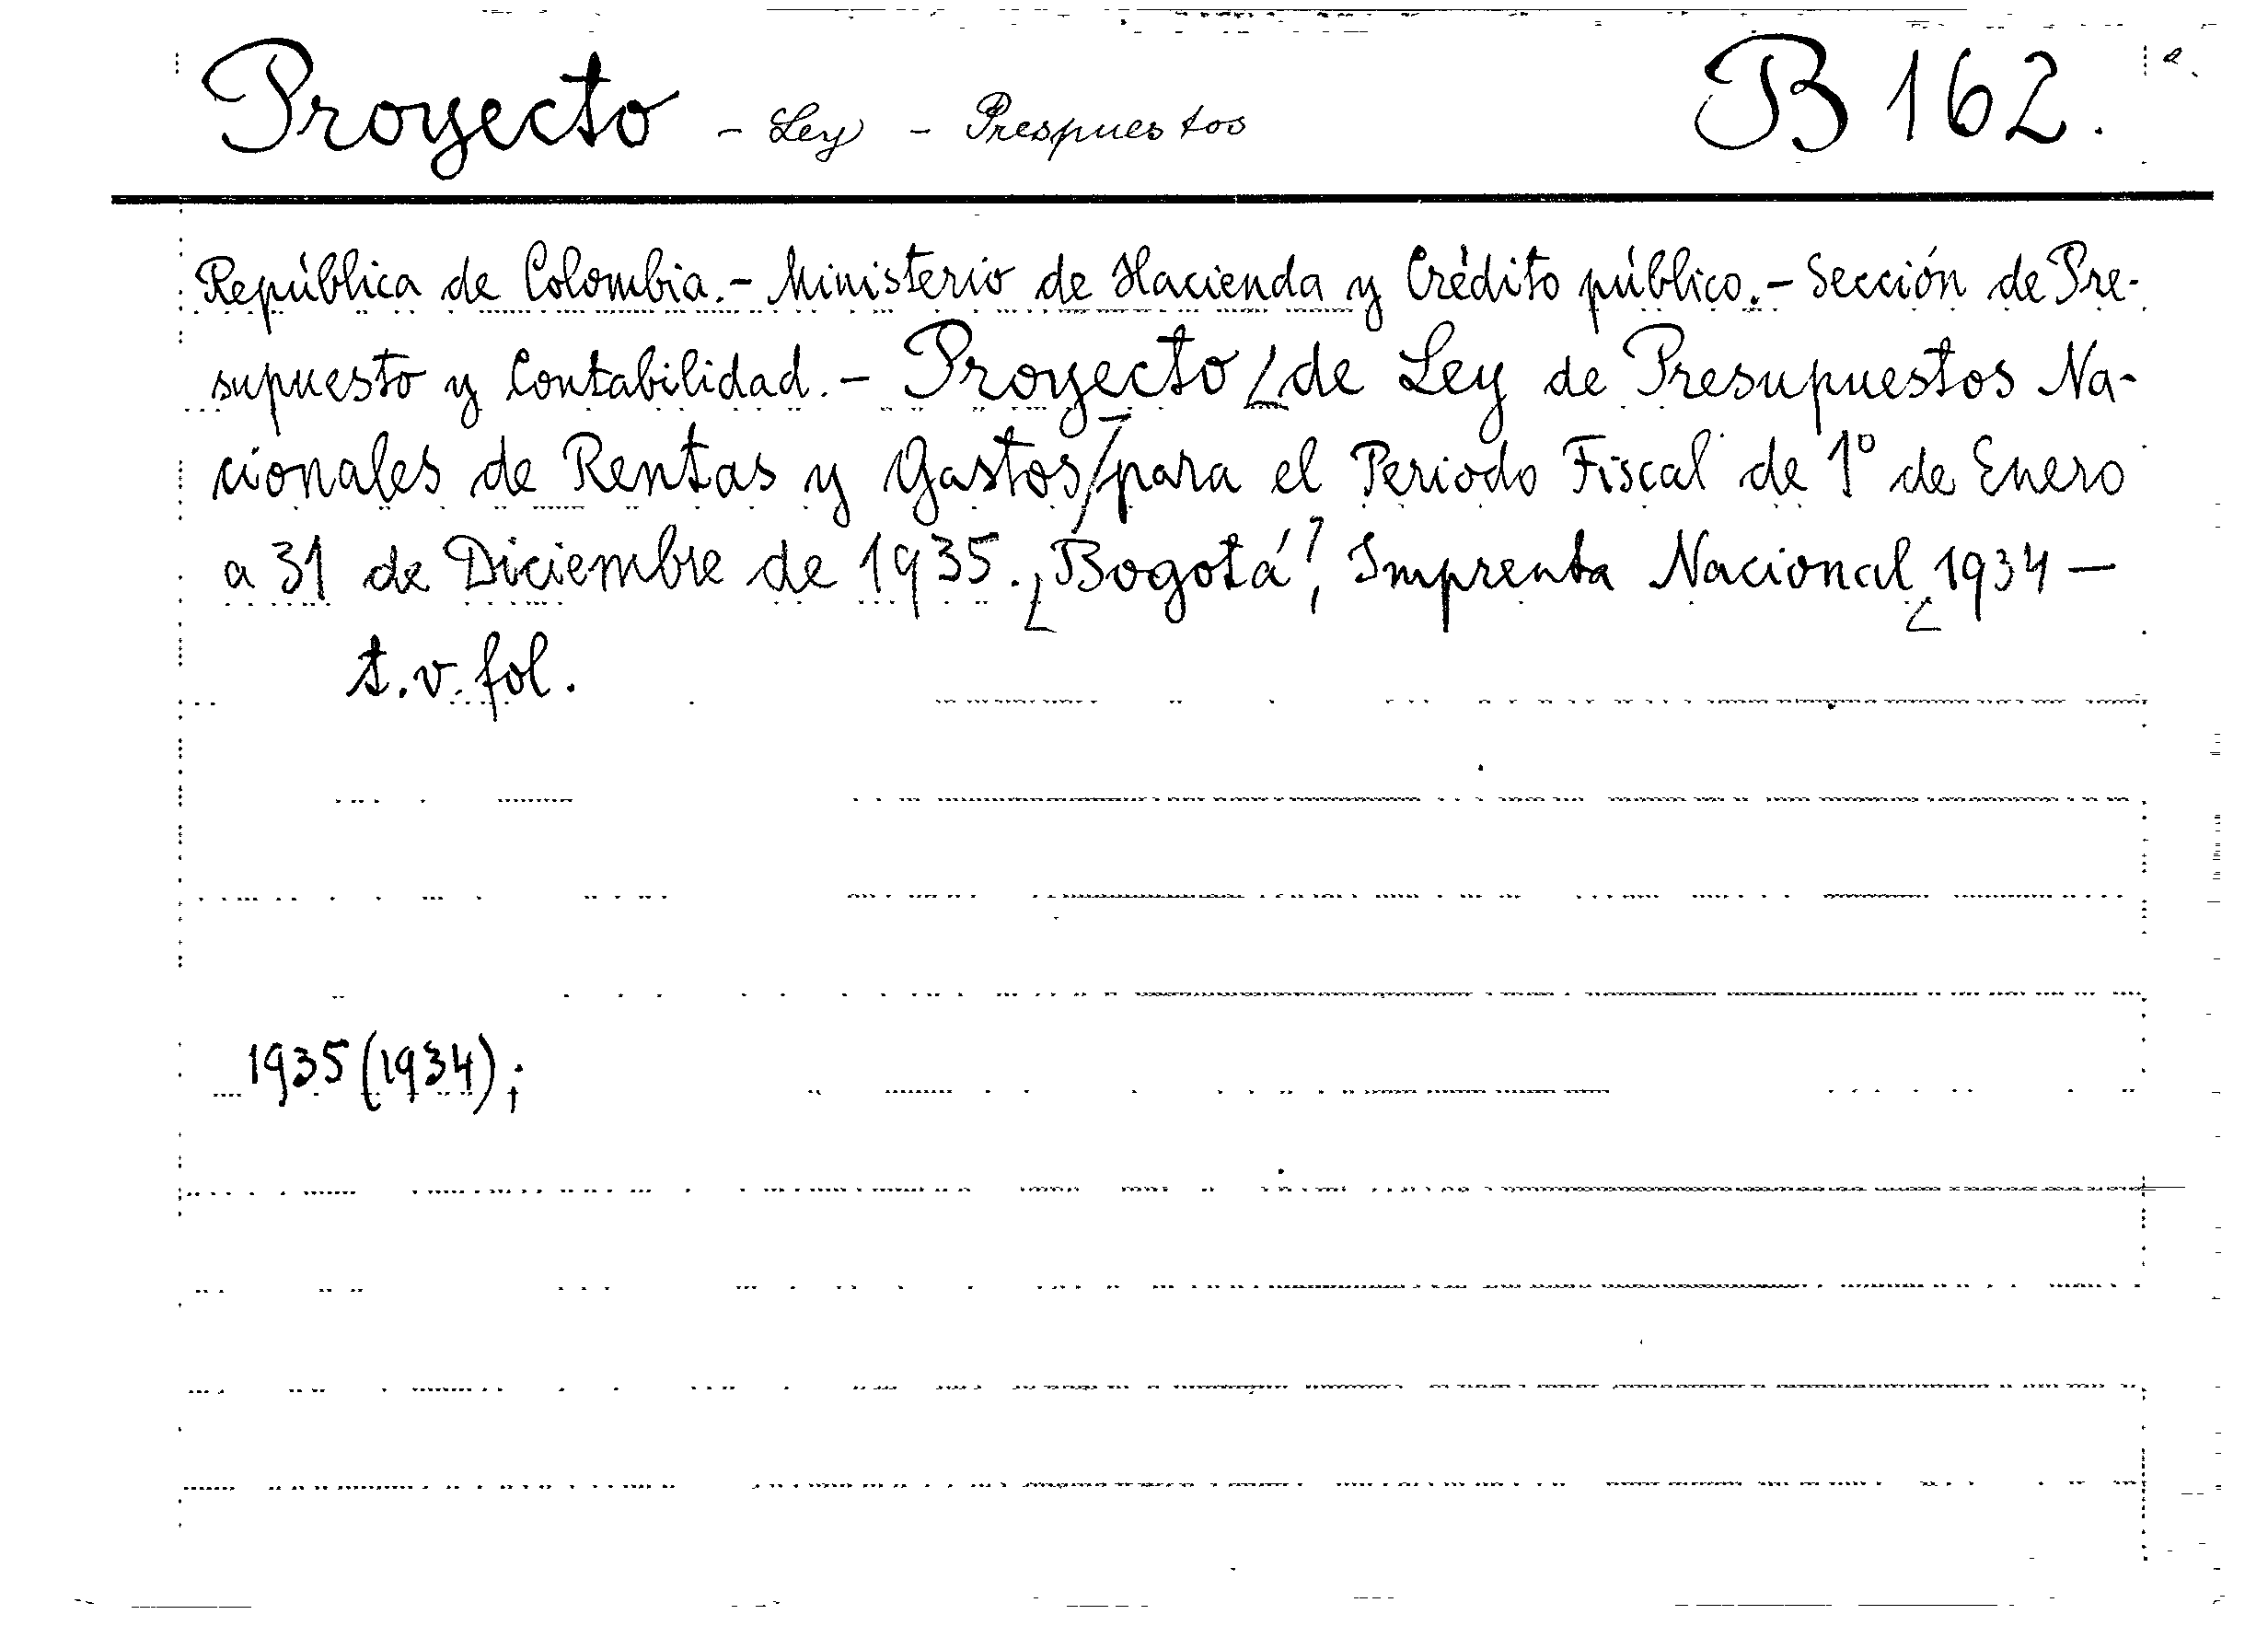 Proyecto - Ley - Prespuestos B 162.
República de Colombia.- Ministerio de Hacienda y Crédito público.- Sección de Pre-
supuesto y Contabilidad.- Proyecto de Ley de Presupuestos Na-
cionales de Rentas y Gastos para el Periodo Fiscal de 1º de Enero
a 31 de Diciembre de 1935. Bogotá, Imprenta Nacional 1934 —
t.v. fol.
1935 (1934);